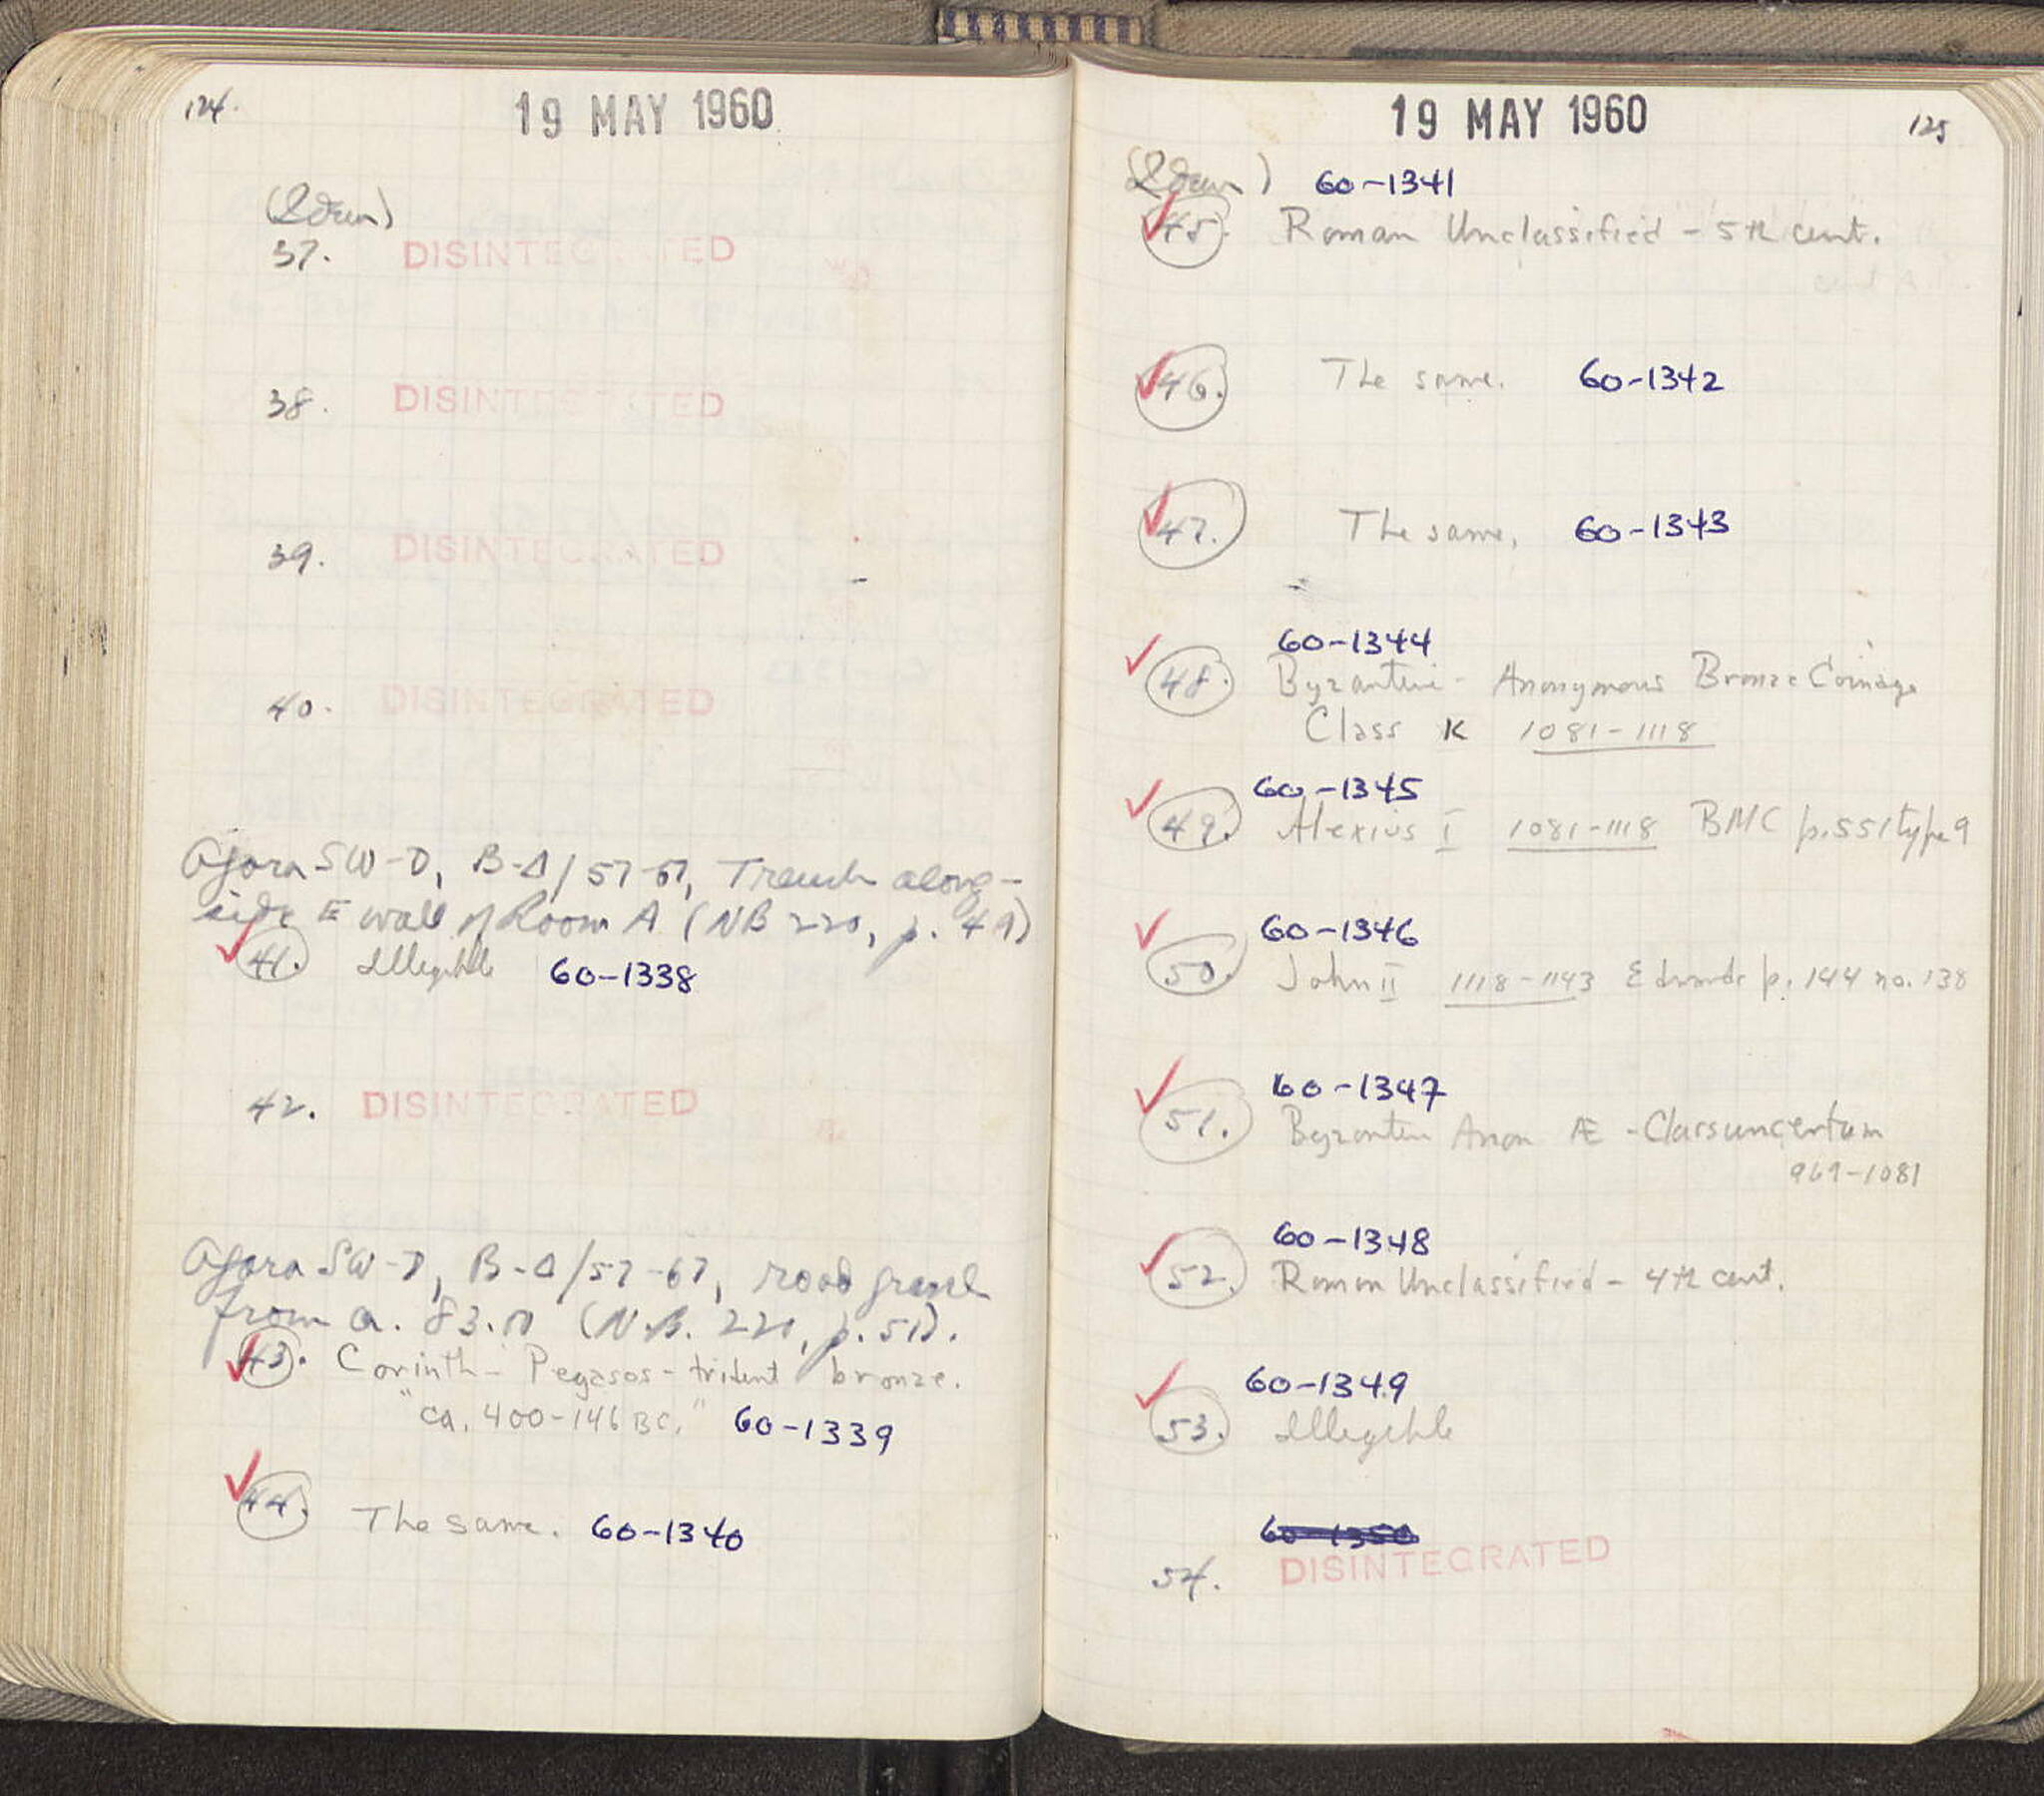 124.
19 MAY 1960
(Idem)
37. DISINTEGRATED
38. DISINTEGRATED
39. DISINTEGRATED
40. DISINTEGRATED
Agora SW-D, B-Δ/57-67, Trench along-
side E wall of Room A (NB 220, p. 49)
41. Illegible 60-1338
42. DISINTEGRATED
Agora SW-D, B-Δ/57-67, road gravel
from a. 83. (N.B. 220, p. 51).
43. Corinth - Pegasos - trident bronze.
"ca. 400-146 BC." 60-1339
44. The same. 60-1340
19 MAY 1960
125
(Idem) 60-1341
45. Roman Unclassified - 5th cent.
46. The same. 60-1342
47. The same, 60-1343
60-1344
48. Byzantine - Anonymous Bronze Coinage
Class K 1081-1118
60-1345
49. Alexius I 1081-1118 BMC p.551 type 9
60-1346
50. John II 1118-1143 Edwards p. 144 no. 138
60-1347
51. Byzantine Anon Æ - Class uncertain
969-1081
60-1348
52. Roman Unclassified - 4th cent.
60-1349
53. Illegible
60-1350
54. DISINTEGRATED